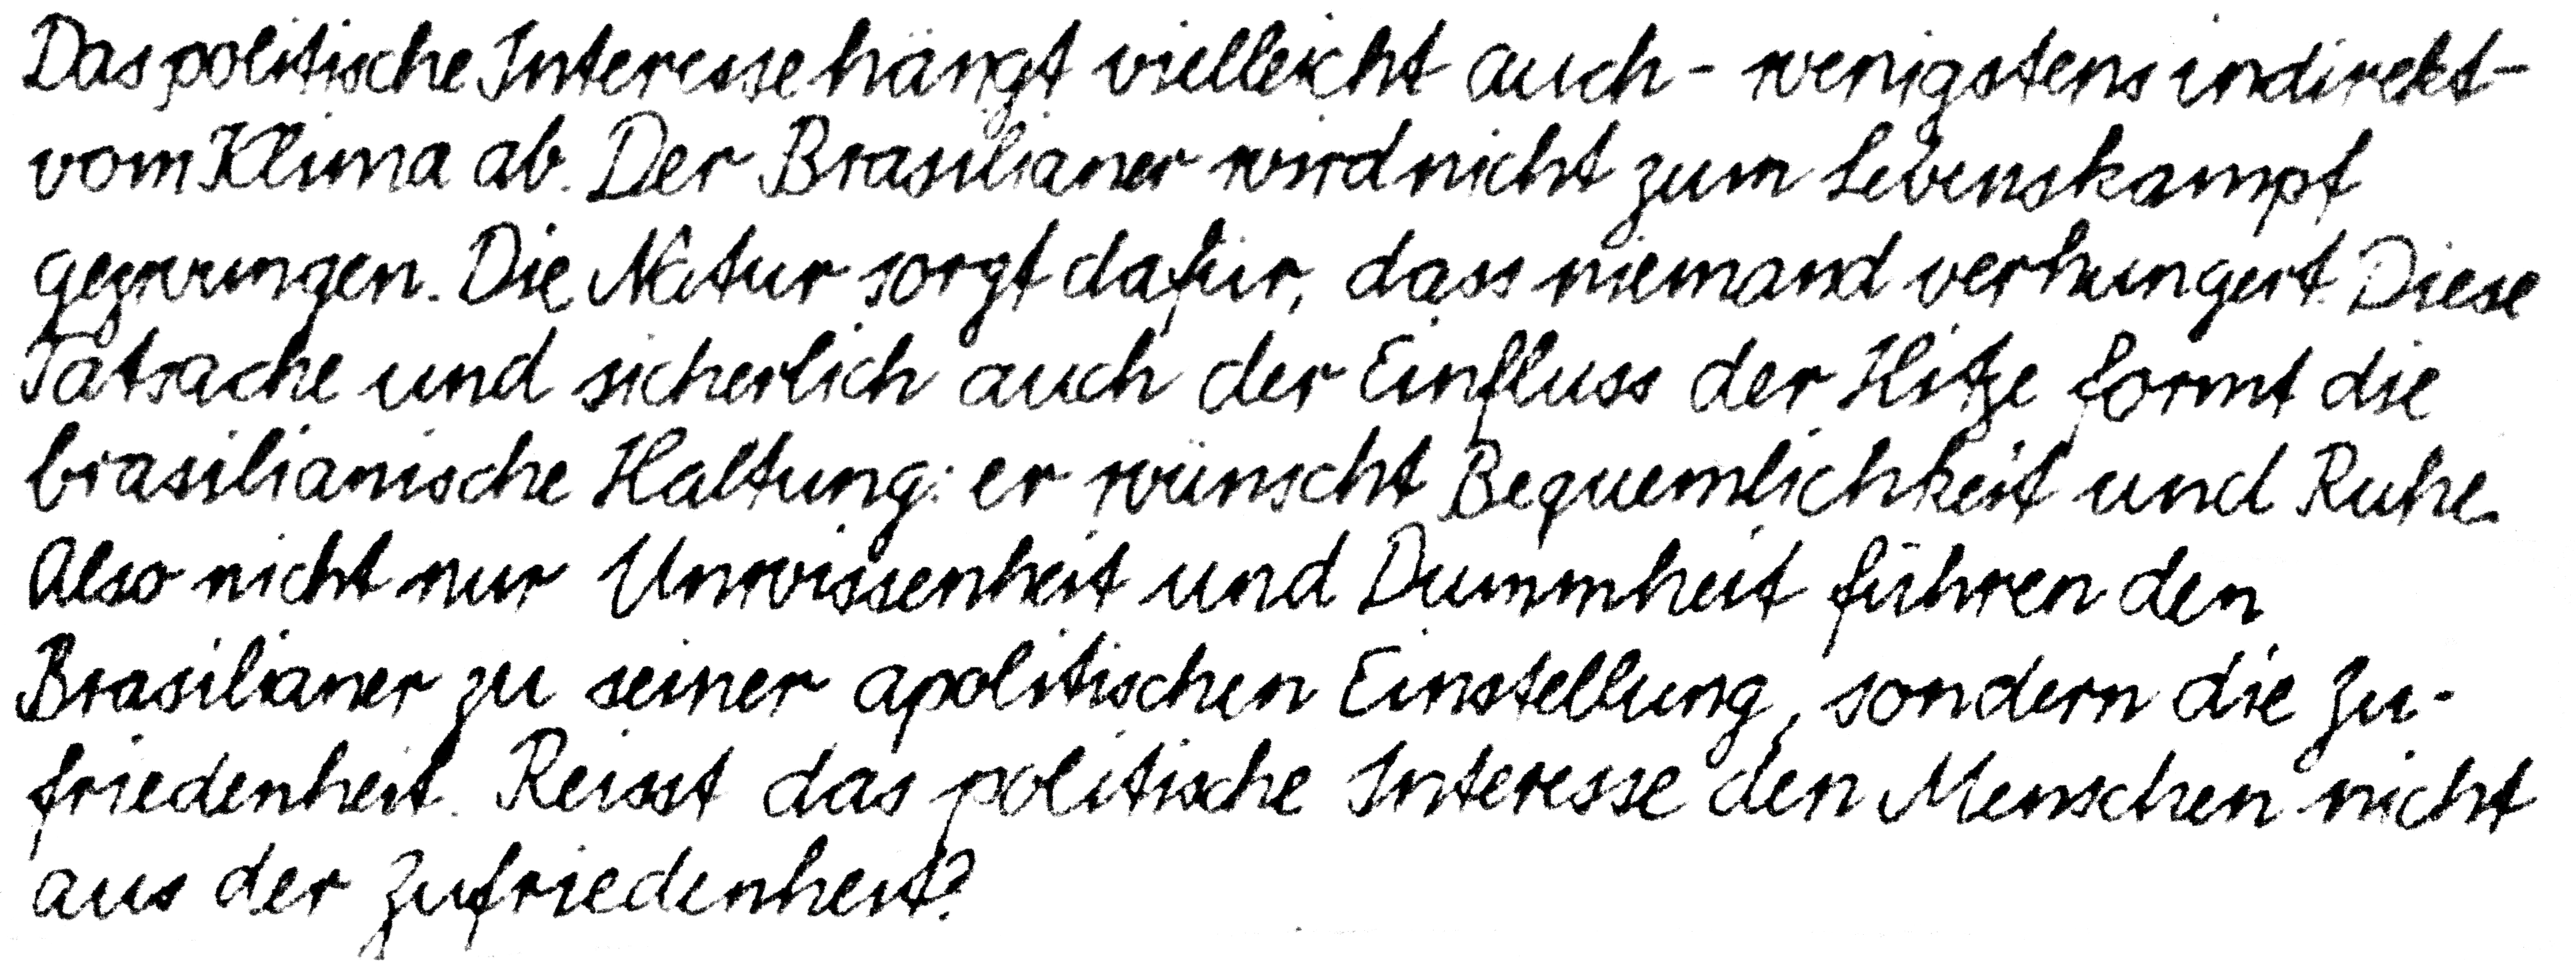 Das politische Interesse hängt vielleicht auch - wenigstens indirekt -
vom Klima ab. Der Brasilianer wird nicht zum Lebenskampf
gezwungen. Die Natur sorgt dafür, dass niemand verhungert. Diese
Tatsache und sicherlich auch der Einfluss der Hitze formt die
brasilianische Haltung: er wünscht Bequemlichkeit und Ruhe.
Also nicht nur Unwissenheit und Dummheit führen den
Brasilianer zu seiner apolitischen Einstellung, sondern die Zu-
friedenheit. Reisst das politische Interesse den Menschen nicht
aus der Zufriedenheit?